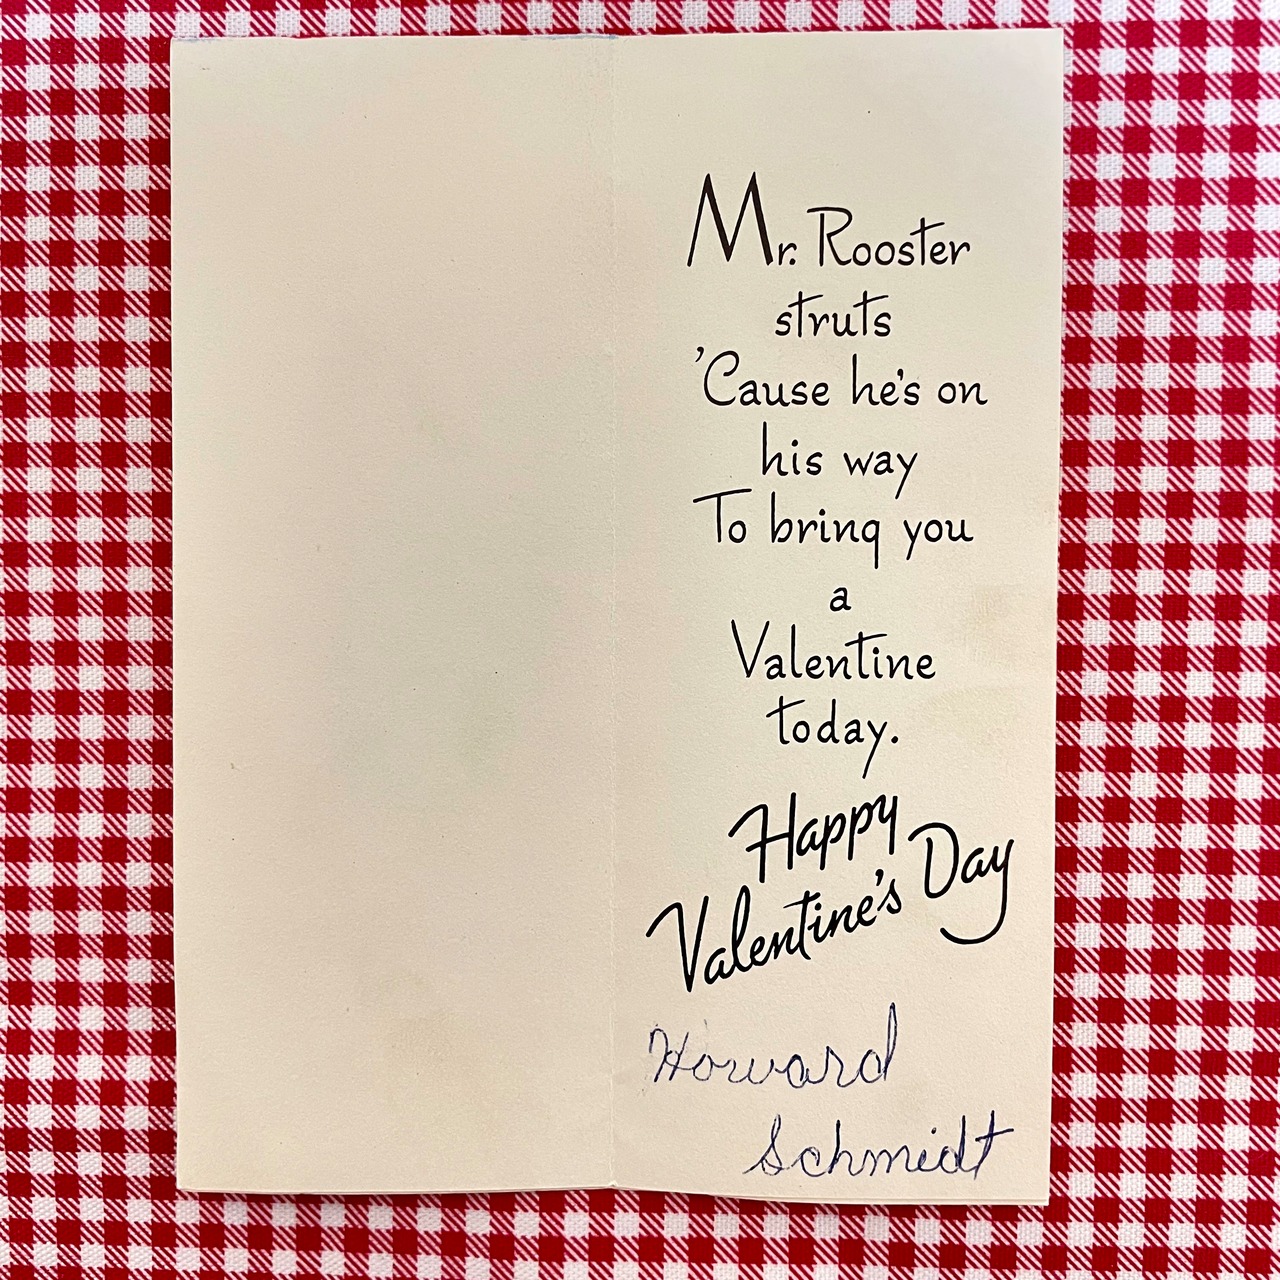 Mr. Rooster
struts
'Cause he's on
his way
To bring you
a
Valentine
today.
Happy
Valentine's Day
Howard
Schmidt